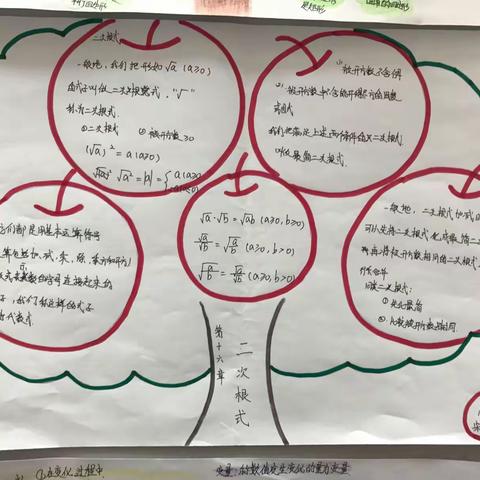 二次根式
一般地,我们把形如√a (a≥0)
的式子叫做二次根式."√"
称为二次根号.
①二次根式 ②被开方数≥0
(√a)² = a (a≥0)
√a² = |a| = { a (a≥0)
(1)被开方数不含分母
(2)被开方数中不含能开得尽方的因数
或因式
我们把满足上述两个条件的二次根式.
叫做最简二次根式.
√a·√b = √ab (a≥0, b≥0)
√a/√b = √(a/b) (a≥0, b>0)
√(a/b) = √a/√b (a≥0, b>0)
它们都是用基本运算符号
算包括加、减、乘、除、乘方和开方)
连接起来的
子,我们称这样的式子
代数式.
一般地,二次根式加减
可以先将二次根式化成最简二
再将被开方数相同的二次根式
合并
二次根式:
①先化最简
②被开方数相同
第十六章
二次根式
①在变化过程中
变量 的数值发生变化的量为变量